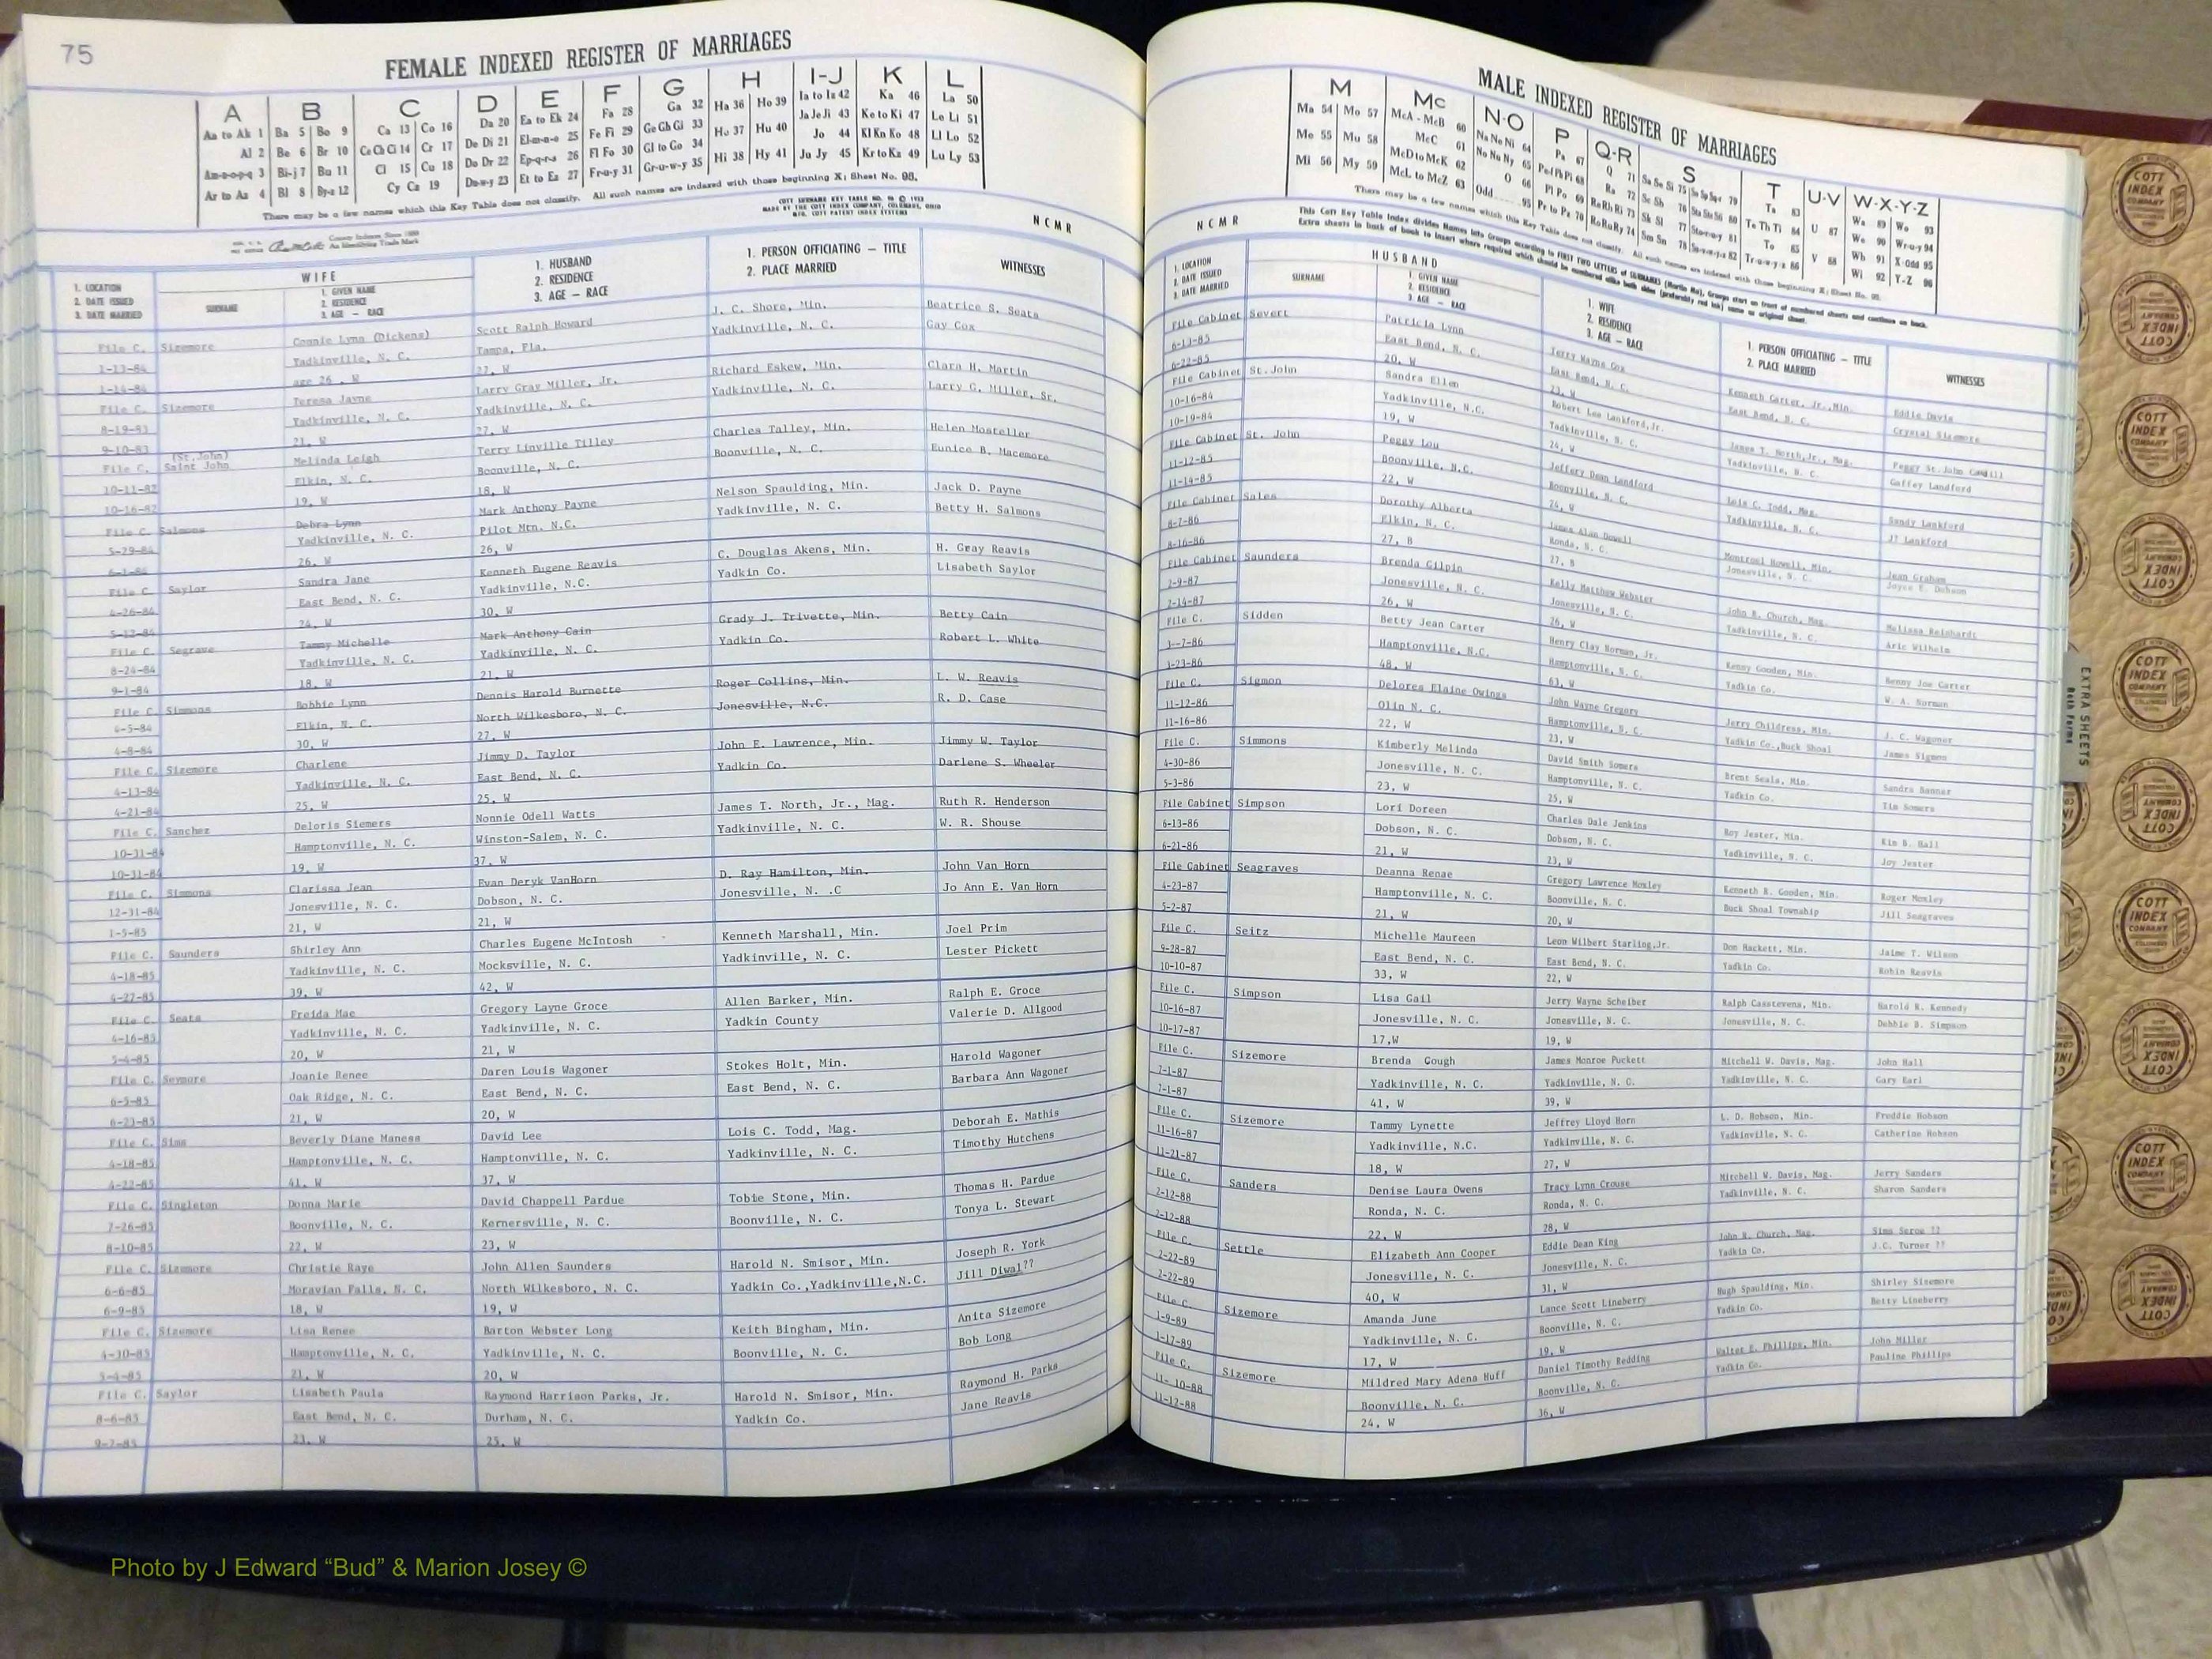 75
FEMALE INDEXED REGISTER OF MARRIAGES
A B C D E F G H I-J K L
Aa to Ak 1 Ba 5 Bo 9 Ca 13 Co 16 Da 20 Ea to Ek 24 Fa 28 Ga 32 Ha 36 Ho 39 Ia to Iz 42 Ka 46 La 50
Al 2 Be 6 Br 10 Ce Ch Ci 14 Cr 17 De Di 21 El-m-n-o 25 Fe Fi 29 Ge Gh Gi 33 He 37 Hu 40 Ja Je Ji 43 Ke to Ki 47 Le Li 51
Am-n-o-p-q 3 Bi-j 7 Bu 11 Cl 15 Cu 18 Do Dr 22 Ep-q-r-s 26 Fl Fo 30 Gl to Go 34 Hi 38 Hy 41 Jo 44 Kl Kn Ko 48 Ll Lo 52
Ar to Az 4 Bl 8 By-z 12 Cy Cz 19 Du-w-y 23 Et to Ez 27 Fr-u-y 31 Gr-u-w-y 35 Ju Jy 45 Kr to Kz 49 Lu Ly 53
There may be a few names which this Key Table does not classify. All such names are indexed with those beginning X; Sheet No. 95.
NCMR
1. LOCATION
2. DATE ISSUED
3. DATE MARRIED
WIFE
SURNAME
1. GIVEN NAME
2. RESIDENCE
3. AGE — RACE
1. HUSBAND
2. RESIDENCE
3. AGE — RACE
1. PERSON OFFICIATING — TITLE
2. PLACE MARRIED
WITNESSES
File C. Sizemore Connie Lynn (Dickens) Scott Ralph Howard J. C. Shore, Min. Beatrice S. Seats
1-13-84 Yadkinville, N. C. Tampa, Fla. Yadkinville, N. C. Gay Cox
1-14-84 age 26 , W 27, W
File C. Sizemore Teresa Jayne Larry Gray Miller, Jr. Richard Eskew, Min. Clara H. Martin
8-19-83 Yadkinville, N. C. Yadkinville, N. C. Yadkinville, N. C. Larry G. Miller, Sr.
9-10-83 21, W 27, W
(St.John)
File C. Saint John Melinda Leigh Terry Linville Tilley Charles Talley, Min. Helen Mosteller
10-11-82 Elkin, N. C. Boonville, N. C. Boonville, N. C. Eunice B. Macemore
10-16-82 19, W 18, W
File C. Salmons Debra Lynn Mark Anthony Payne Nelson Spaulding, Min. Jack D. Payne
5-29-84 Yadkinville, N. C. Pilot Mtn. N.C. Yadkinville, N. C. Betty H. Salmons
6-1-84 26, W 26, W
File C Saylor Sandra Jane Kenneth Eugene Reavis C. Douglas Akens, Min. H. Gray Reavis
4-26-84 East Bend, N. C. Yadkinville, N.C. Yadkin Co. Lisabeth Saylor
5-12-84 24, W 30, W
File C. Segrave Tammy Michelle Mark Anthony Cain Grady J. Trivette, Min. Betty Cain
8-24-84 Yadkinville, N. C. Yadkinville, N. C. Yadkin Co. Robert L. White
9-1-84 18, W 21, W
File C Simmons Bobbie Lynn Dennis Harold Burnette Roger Collins, Min. L. W. Reavis
4-5-84 Elkin, N. C. North Wilkesboro, N. C. Jonesville, N.C. R. D. Case
4-8-84 30, W 27, W
File C. Sizemore Charlene Jimmy D. Taylor John E. Lawrence, Min. Jimmy W. Taylor
4-13-84 Yadkinville, N. C. East Bend, N. C. Yadkin Co. Darlene S. Wheeler
4-21-84 25, W 25, W
File C. Sanchez Deloris Siemers Nonnie Odell Watts James T. North, Jr., Mag. Ruth R. Henderson
10-31-84 Hamptonville, N. C. Winston-Salem, N. C. Yadkinville, N. C. W. R. Shouse
10-31-84 19, W 37, W
File C. Simmons Clarissa Jean Evan Deryk VanHorn D. Ray Hamilton, Min. John Van Horn
12-31-84 Jonesville, N. C. Dobson, N. C. Jonesville, N. .C Jo Ann E. Van Horn
1-5-85 21, W 21, W
File C. Saunders Shirley Ann Charles Eugene McIntosh Kenneth Marshall, Min. Joel Prim
4-18-85 Yadkinville, N. C. Mocksville, N. C. Yadkinville, N. C. Lester Pickett
4-27-85 39, W 42, W
File C. Seats Freida Mae Gregory Layne Groce Allen Barker, Min. Ralph E. Groce
4-16-85 Yadkinville, N. C. Yadkinville, N. C. Yadkin County Valerie D. Allgood
5-4-85 20, W 21, W
File C. Seymore Joanie Renee Daren Louis Wagoner Stokes Holt, Min. Harold Wagoner
6-5-85 Oak Ridge, N. C. East Bend, N. C. East Bend, N. C. Barbara Ann Wagoner
6-23-85 21, W 20, W
File C. Sims Beverly Diane Maness David Lee Lois C. Todd, Mag. Deborah E. Mathis
4-18-85 Hamptonville, N. C. Hamptonville, N. C. Yadkinville, N. C. Timothy Hutchens
4-22-85 41, W 37, W
File C. Singleton Donna Marie David Chappell Pardue Tobie Stone, Min. Thomas H. Pardue
7-26-85 Boonville, N. C. Kernersville, N. C. Boonville, N. C. Tonya L. Stewart
8-10-85 22, W 23, W
File C. Sizemore Christie Raye John Allen Saunders Harold N. Smisor, Min. Joseph R. York
6-6-85 Moravian Falls, N. C. North Wilkesboro, N. C. Yadkin Co.,Yadkinville,N.C. Jill Diwal??
6-9-85 18, W 19, W
File C. Sizemore Lisa Renee Barton Webster Long Keith Bingham, Min. Anita Sizemore
4-30-85 Hamptonville, N. C. Yadkinville, N. C. Boonville, N. C. Bob Long
5-4-85 21, W 20, W
File C. Saylor Lisabeth Paula Raymond Harrison Parks, Jr. Harold N. Smisor, Min. Raymond H. Parks
8-6-85 East Bend, N. C. Durham, N. C. Yadkin Co. Jane Reavis
9-7-85 23, W 25, W
MALE INDEXED REGISTER OF MARRIAGES
M Mc N-O P Q-R S T U-V W-X-Y-Z
Ma 54 Mo 57 McA - McB 60
Me 55 Mu 58 McC 61
Mi 56 My 59 McD to McK 62
McL to McZ 63
NCMR
1. LOCATION
2. DATE ISSUED
3. DATE MARRIED
HUSBAND
SURNAME
1. GIVEN NAME
2. RESIDENCE
3. AGE — RACE
1. WIFE
2. RESIDENCE
3. AGE — RACE
1. PERSON OFFICIATING — TITLE
2. PLACE MARRIED
WITNESSES
File Cabinet Severt Patricia Lynn Terry Wayne Cox Kenneth Carter, Jr.,Min. Eddie Davis
6-13-85 East Bend, N. C. East Bend, N. C. East Bend, N. C. Crystal Sizemore
6-22-85 20, W 23, W
File Cabinet St.John Sandra Ellen Robert Lee Lankford,Jr. James T. North,Jr., Mag. Peggy St.John Caudill
10-16-84 Yadkinville, N.C. Yadkinville, N. C. Yadkinville, N. C. Gaffey Landford
10-19-84 19, W 24, W
File Cabinet St. John Peggy Lou Jeffery Dean Landford Lois C. Todd, Mag. Sandy Lankford
11-12-85 Boonville, N.C. Boonville, N. C. Yadkinville, N. C. J? Lankford
11-14-85 22, W 24, W
File Cabinet Sales Dorothy Alberta James Alan Dowell Montroel Howell, Min. Jean Graham
8-7-86 Elkin, N. C. Ronda, N. C. Jonesville, N. C. Joyce E. Dobson
8-16-86 27, B 27, B
File Cabinet Saunders Brenda Gilpin Kelly Matthew Webster John R. Church, Mag. Melissa Reinhardt
2-9-87 Jonesville, N. C. Jonesville, N. C. Yadkinville, N. C. Aric Wilhelm
2-14-87 26, W 26, W
File C. Sidden Betty Jean Carter Henry Clay Norman, Jr. Kenny Gooden, Min. Benny Joe Carter
1--7-86 Hamptonville, N.C. Hamptonville, N. C. Yadkin Co. W. A. Norman
1-23-86 48, W 63, W
File C. Sigmon Delores Elaine Owings John Wayne Gregory Jerry Childress, Min. J. C. Wagoner
11-12-86 Olin N. C. Hamptonville, N. C. Yadkin Co.,Buck Shoal James Sigmon
11-16-86 22, W 23, W
File C. Simmons Kimberly Melinda David Smith Somers Brent Seals, Min. Sandra Banner
4-30-86 Jonesville, N. C. Hamptonville, N. C. Yadkin Co. Tim Somers
5-3-86 23, W 25, W
File Cabinet Simpson Lori Doreen Charles Dale Jenkins Roy Jester, Min. Kim B. Hall
6-13-86 Dobson, N. C. Dobson, N. C. Yadkinville, N. C. Joy Jester
6-21-86 21, W 23, W
File Cabinet Seagraves Deanna Renae Gregory Lawrence Moxley Kenneth R. Gooden, Min. Roger Moxley
4-23-87 Hamptonville, N. C. Boonville, N. C. Buck Shoal Township Jill Seagraves
5-2-87 21, W 20, W
File C. Seitz Michelle Maureen Leon Wilbert Starling,Jr. Don Hackett, Min. Jaime T. Wilson
9-28-87 East Bend, N. C. East Bend, N. C. Yadkin Co. Robin Reavis
10-10-87 33, W 22, W
File C. Simpson Lisa Gail Jerry Wayne Scheiber Ralph Casstevens, Min. Harold R. Kennedy
10-16-87 Jonesville, N. C. Jonesville, N. C. Jonesville, N. C. Debbie B. Simpson
10-17-87 17,W 19, W
File C. Sizemore Brenda Gough James Monroe Puckett Mitchell W. Davis, Mag. John Hall
7-1-87 Yadkinville, N. C. Yadkinville, N. C. Yadkinville, N. C. Gary Earl
7-1-87 41, W 39, W
File C. Sizemore Tammy Lynette Jeffrey Lloyd Horn L. D. Hobson, Min. Freddie Hobson
11-16-87 Yadkinville, N.C. Yadkinville, N. C. Yadkinville, N. C. Catherine Hobson
11-21-87 18, W 27, W
File C. Sanders Denise Laura Owens Tracy Lynn Crouse Mitchell W. Davis, Mag. Jerry Sanders
2-12-88 Ronda, N. C. Ronda, N. C. Yadkinville, N. C. Sharon Sanders
2-12-88 22, W 28, W
File C. Settle Elizabeth Ann Cooper Eddie Dean King John R. Church, Mag. Sims Serow ??
2-22-89 Jonesville, N. C. Jonesville, N. C. Yadkin Co. J.C. Turner ??
2-22-89 40, W 31, W
File C. Sizemore Amanda June Lance Scott Lineberry Hugh Spaulding, Min. Shirley Sizemore
1-9-89 Yadkinville, N. C. Boonville, N. C. Yadkin Co. Betty Lineberry
1-17-89 17, W 19, W
File C. Sizemore Mildred Mary Adena Huff Daniel Timothy Redding Walter E. Phillips, Min. John Miller
11- 10-88 Boonville, N. C. Boonville, N. C. Yadkin Co. Pauline Phillips
11-12-88 24, W 36, W
EXTRA SHEETS
Both Forms
COTT INDEX COMPANY
Photo by J Edward “Bud” & Marion Josey ©